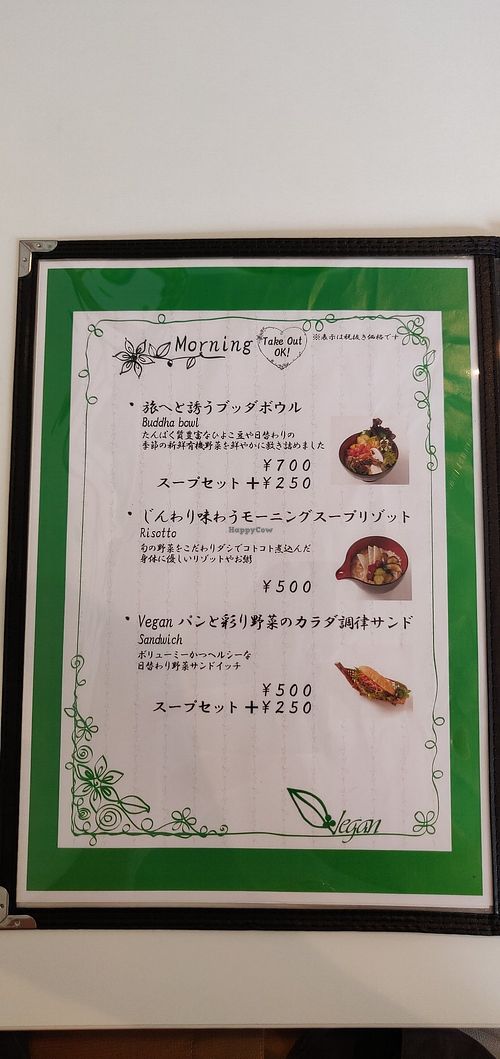 Morning
Take Out
OK!
※表示は税抜き価格です
・旅へと誘うブッダボウル
Buddha bowl
たんぱく質豊富なひよこ豆や日替わりの
季節の新鮮有機野菜を鮮やかに敷き詰めました
¥700
スープセット +¥250
・じんわり味わうモーニングスープリゾット
Risotto
HappyCow
旬の野菜をこだわりダシでコトコト煮込んだ
身体に優しいリゾットやお粥
¥500
・Vegan パンと彩り野菜のカラダ調律サンド
Sandwich
ボリューミーかつヘルシーな
日替わり野菜サンドイッチ
¥500
スープセット +¥250
Vegan